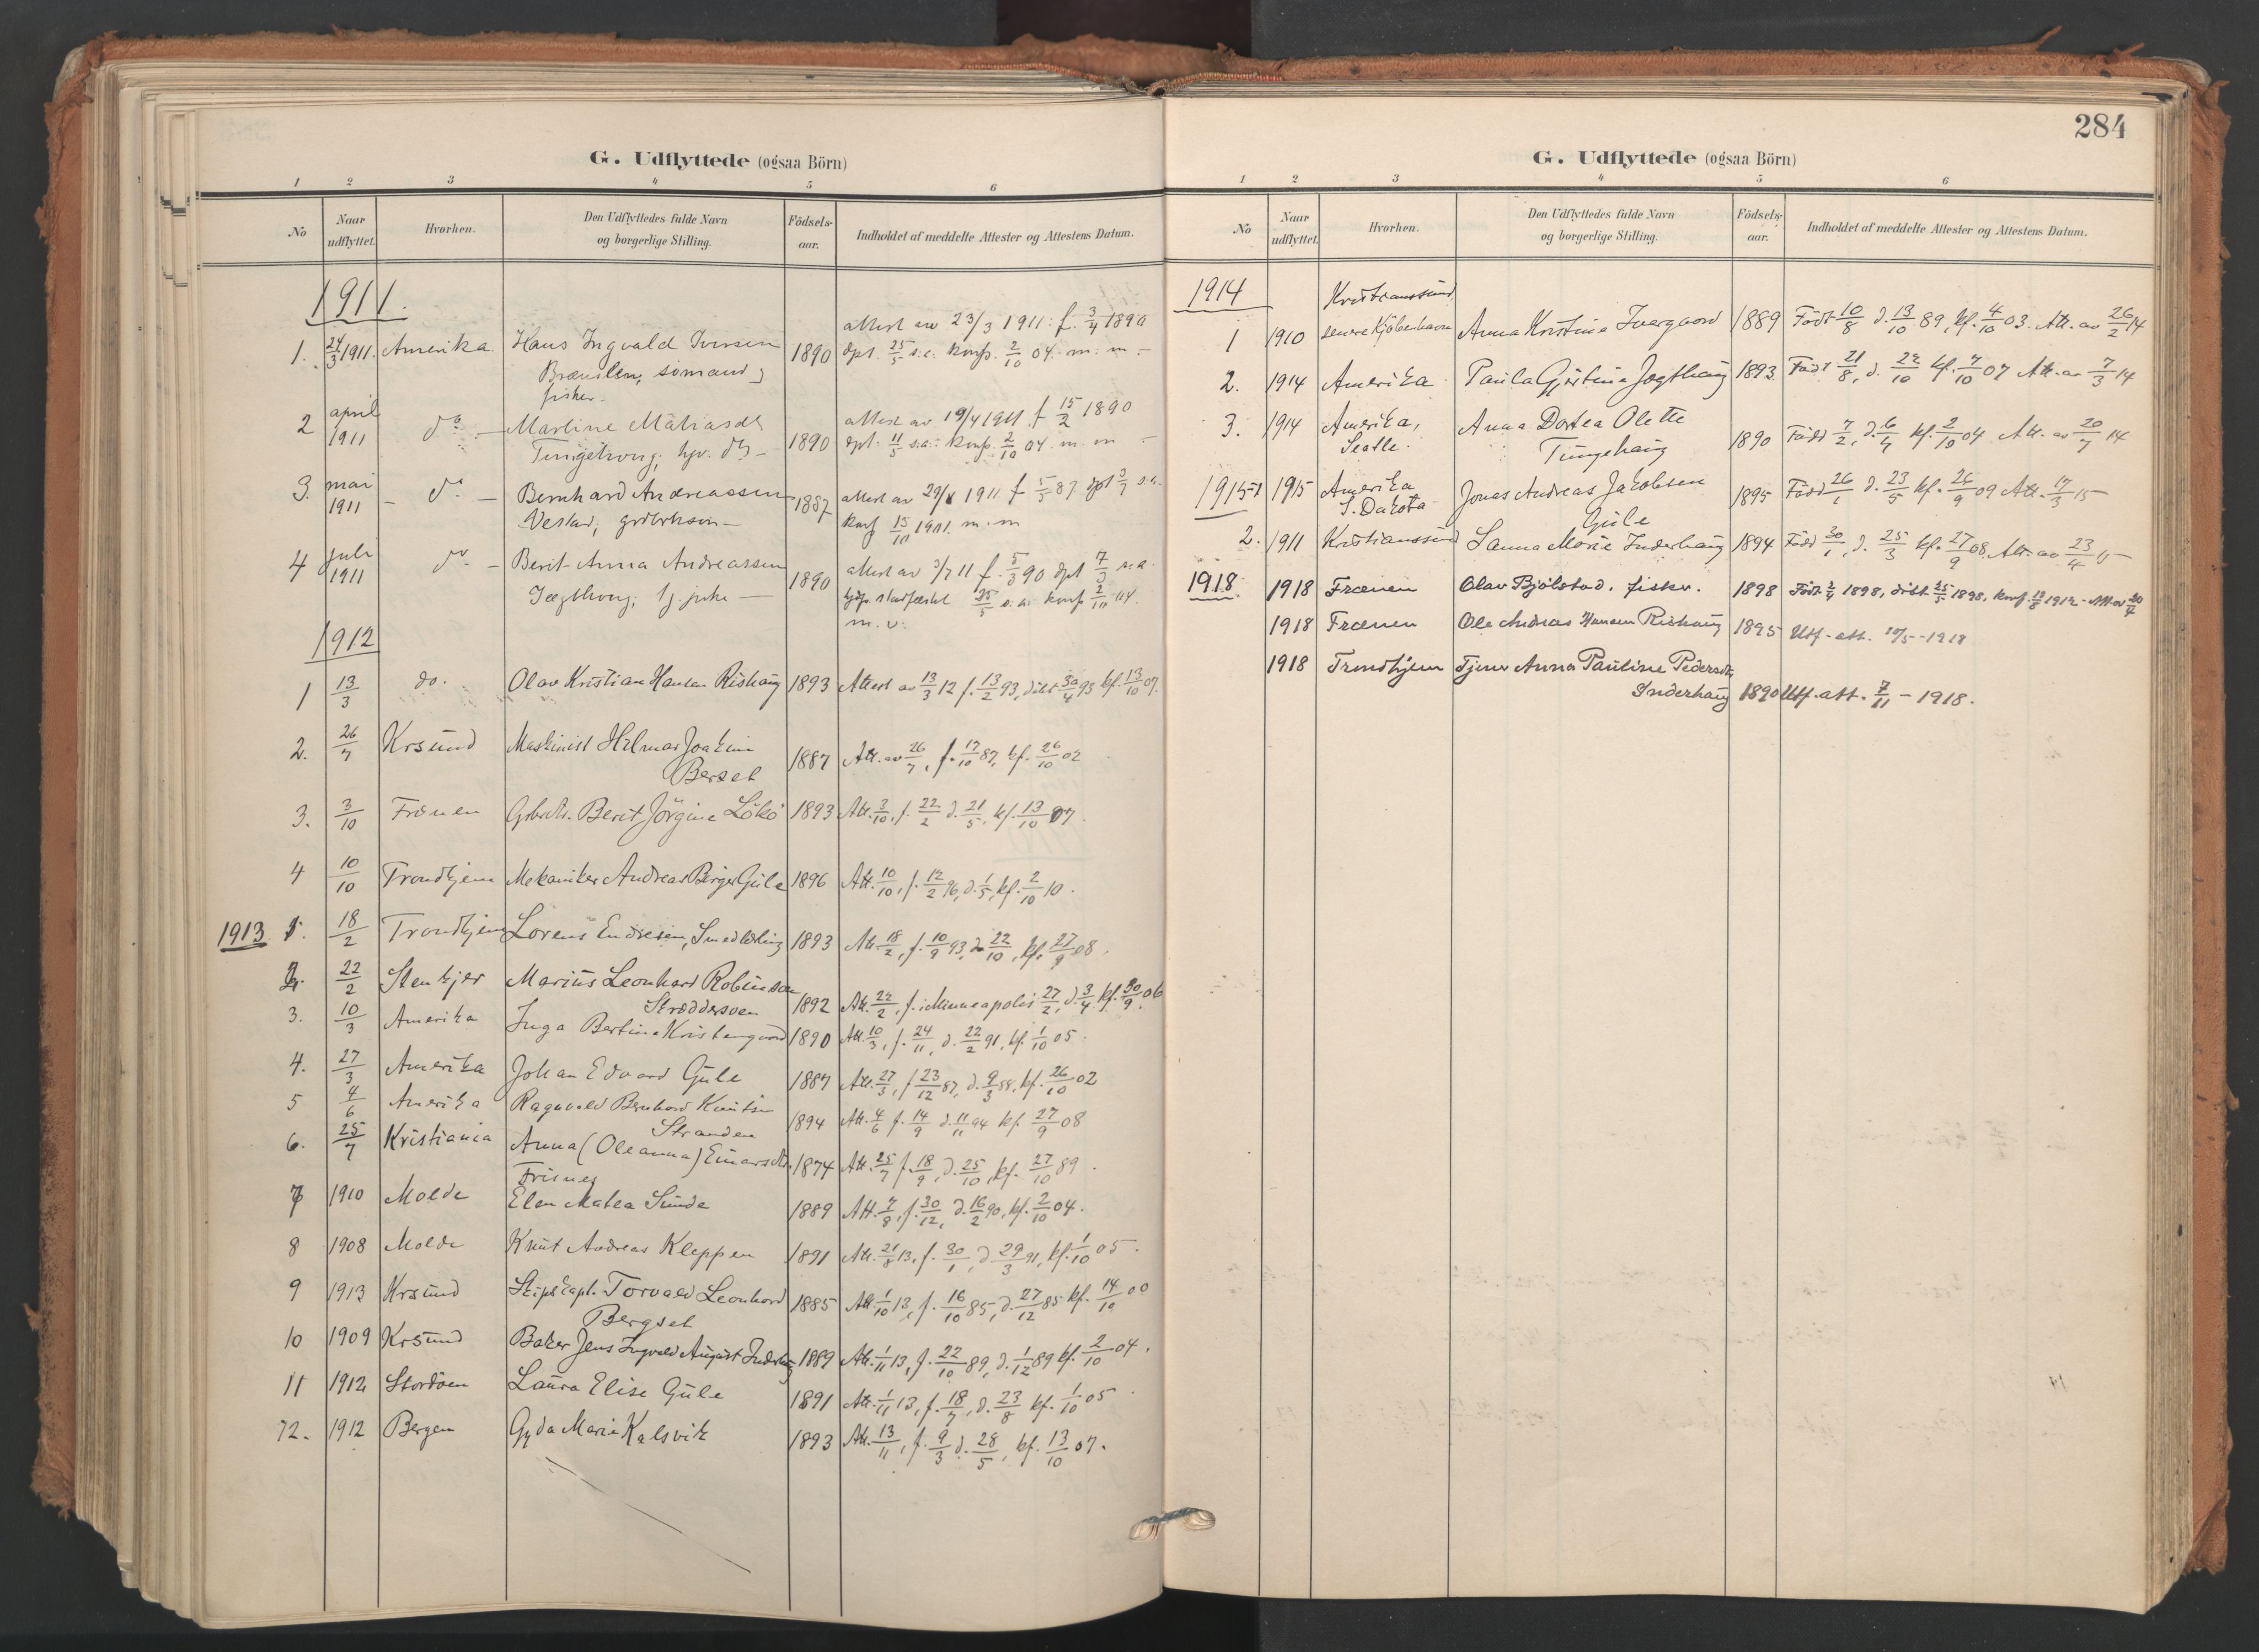 G. Udflyttede (ogsaa Börn)
1 2 3 4 5 6
No Naar udflyttet. Hvorhen. Den Udflyttedes fulde Navn og borgerlige Stilling. Födsels-aar. Indholdet af meddelte Attester og Attestens Datum.
1911.
attest av 23/3 1911: f. 3/4 1890
1. 24/3 1911. Amerika Hans Ingvald Iversen 1890 dpt. 25/5 s.a. konf. 2/10 04. m. m. -
sömand
fisker.
2 april 1911 do - Martine Matiasdtr 1890 attest av 19/4 1911 f 15/2 1890
dpt. 11/5 s.a. konf. 2/10 04. m. m -
3. mai 1911 - do - Bernhard Andreassen 1887 attest av 1911 f 1/5 87 dpt 3/7 s.a.
konf 15/10 1901. m. m
4 juli 1911 do - Berit Anna Andreassen 1890 attest av 3/7 11 f. 5/3 90 dpt 7/3 s.a.
25/5 s. a. konf 2/10 04.
m. v.
1912
1 13/3 do. Olav Kristian Hansen Rishaug 1893 Attest av 13/3 12 f. 13/2 93, döbt 30/4 93 kf. 13/10 07.
2. 26/7 Krsund Maskinist Hilmar Joakim 1887 Att. av 26/7, f. 17/10 87, kf. 26/10 02
Berset
3. 3/10 Frænen Grbrdtr. Berit Jörgine Lökö 1893 Att. 3/10, f. 22/2 d. 21/5, kf. 13/10 07.
4 10/10 Trondhjem Mekaniker Andreas Birger Gule 1896 Att. 10/10, f. 12/2 96, d. 1/5, kf. 2/10 10.
1913. 1. 18/2 Trondhjem Lorens Endresen, Smedlærling 1893 Att. 18/2, f. 10/9 93, d. 22/10, kf. 27/9 08.
2. 22/2 Stenkjer Marius Leonhard Robinson
1892 Att. 22/2, f. i Minneapolis 27/2, d. 3/4, kf. 30/9 06
3. 10/3 Amerika Inga Bertine Kristengaard 1890 Att. 10/3, f. 24/11, d. 22/2 91, kf. 1/10 05.
4. 27/3 Amerika Johan Edvard Gule 1887 Att. 27/3, f 23/12 87, d. 9/3 88, kf. 26/10 02
5 4/6 Amerika Ragnvald Bernhard Knutsen 1894 Att. 4/6 f. 14/9 d. 11/11 94 kf. 27/9 08
Stranden
6. 25/7 Kristiania Anna (Oleanna) Einarsdtr. 1874 Att. 25/7 f. 18/9, d. 25/10, kf. 27/10 89.
7 1910 Molde Elen Matea Sunde 1889 Att. 7/8, f. 30/12, d. 16/2 90, kf. 2/10 04.
8 1908 Molde Knut Andreas Kleppen 1891 Att. 21/8 13, f. 30/1, d. 29/3 91, kf. 1/10 05.
9 1913 Krsund Skipskapt. Torvald Leonhard 1885 Att. 1/10 13, f. 16/10 85, d. 27/12 85 kf. 14/10 00
Bergset
10 1909 Krsund Baker Jens Ingvald August Inderhaug 1889 Att. 1/11 13, f. 22/10 89, d. 1/12 89 kf. 2/10 04.
11 1912 Stordöen Laura Elise Gule 1891 Att. 1/11 13, f. 18/7, d. 23/8 kf. 1/10 05.
12. 1912 Bergen Gyda Marie Kalsvik 1893 Att. 13/11, f. 9/3 d. 28/5, kf. 13/10 07.
284
G. Udflyttede (ogsaa Börn)
1 2 3 4 5 6
No Naar udflyttet. Hvorhen. Den Udflyttedes fulde Navn og borgerlige Stilling. Födsels-aar. Indholdet af meddelte Attester og Attestens Datum.
1914 Kristianssund
1 1910 senere Kjöbenhavn Anna Kristine Ivergaard 1889 Född 10/8 d. 13/10 89, kf. 4/10 03. Att. av 26/2 14
2. 1914 Amerika Paula Gjertine Jægthaug 1893 Född 21/8, d. 22/10 kf. 7/10 07 Att. av 7/3 14
3. 1914 Amerika, Anna Dortea Olette
Seatle. Tungehaug 1890 Född 7/2, d. 6/4 kf. 2/10 04 Att. av 20/7 14
1915 1 1915 Amerika Jonas Andreas Jakobsen 1895 Född 26/1 d. 23/5 kf. 26/9 09 Att. 17/3 15
S. Dakota Gule
2. 1911 Kristianssund Lanna Marie Inderhaug 1894 Född 30/1, d. 25/3 kf. 27/9 08. Att. av 23/4 15
1918. 1918 Frænen Olav Bjölstad, fisker. 1898 Född 2/4 1898, döbt 25/5 1898, konf. 18/8 1912 - Att av 20/4
1918 Frænen Ole Andreas Hansen Rishaug 1895 Utf. att. 10/5 - 1918
1918 Trondhjem Tjener Anna Pauline Pedersdtr
Inderhaug 1890 Utf. att. 7/11 - 1918.